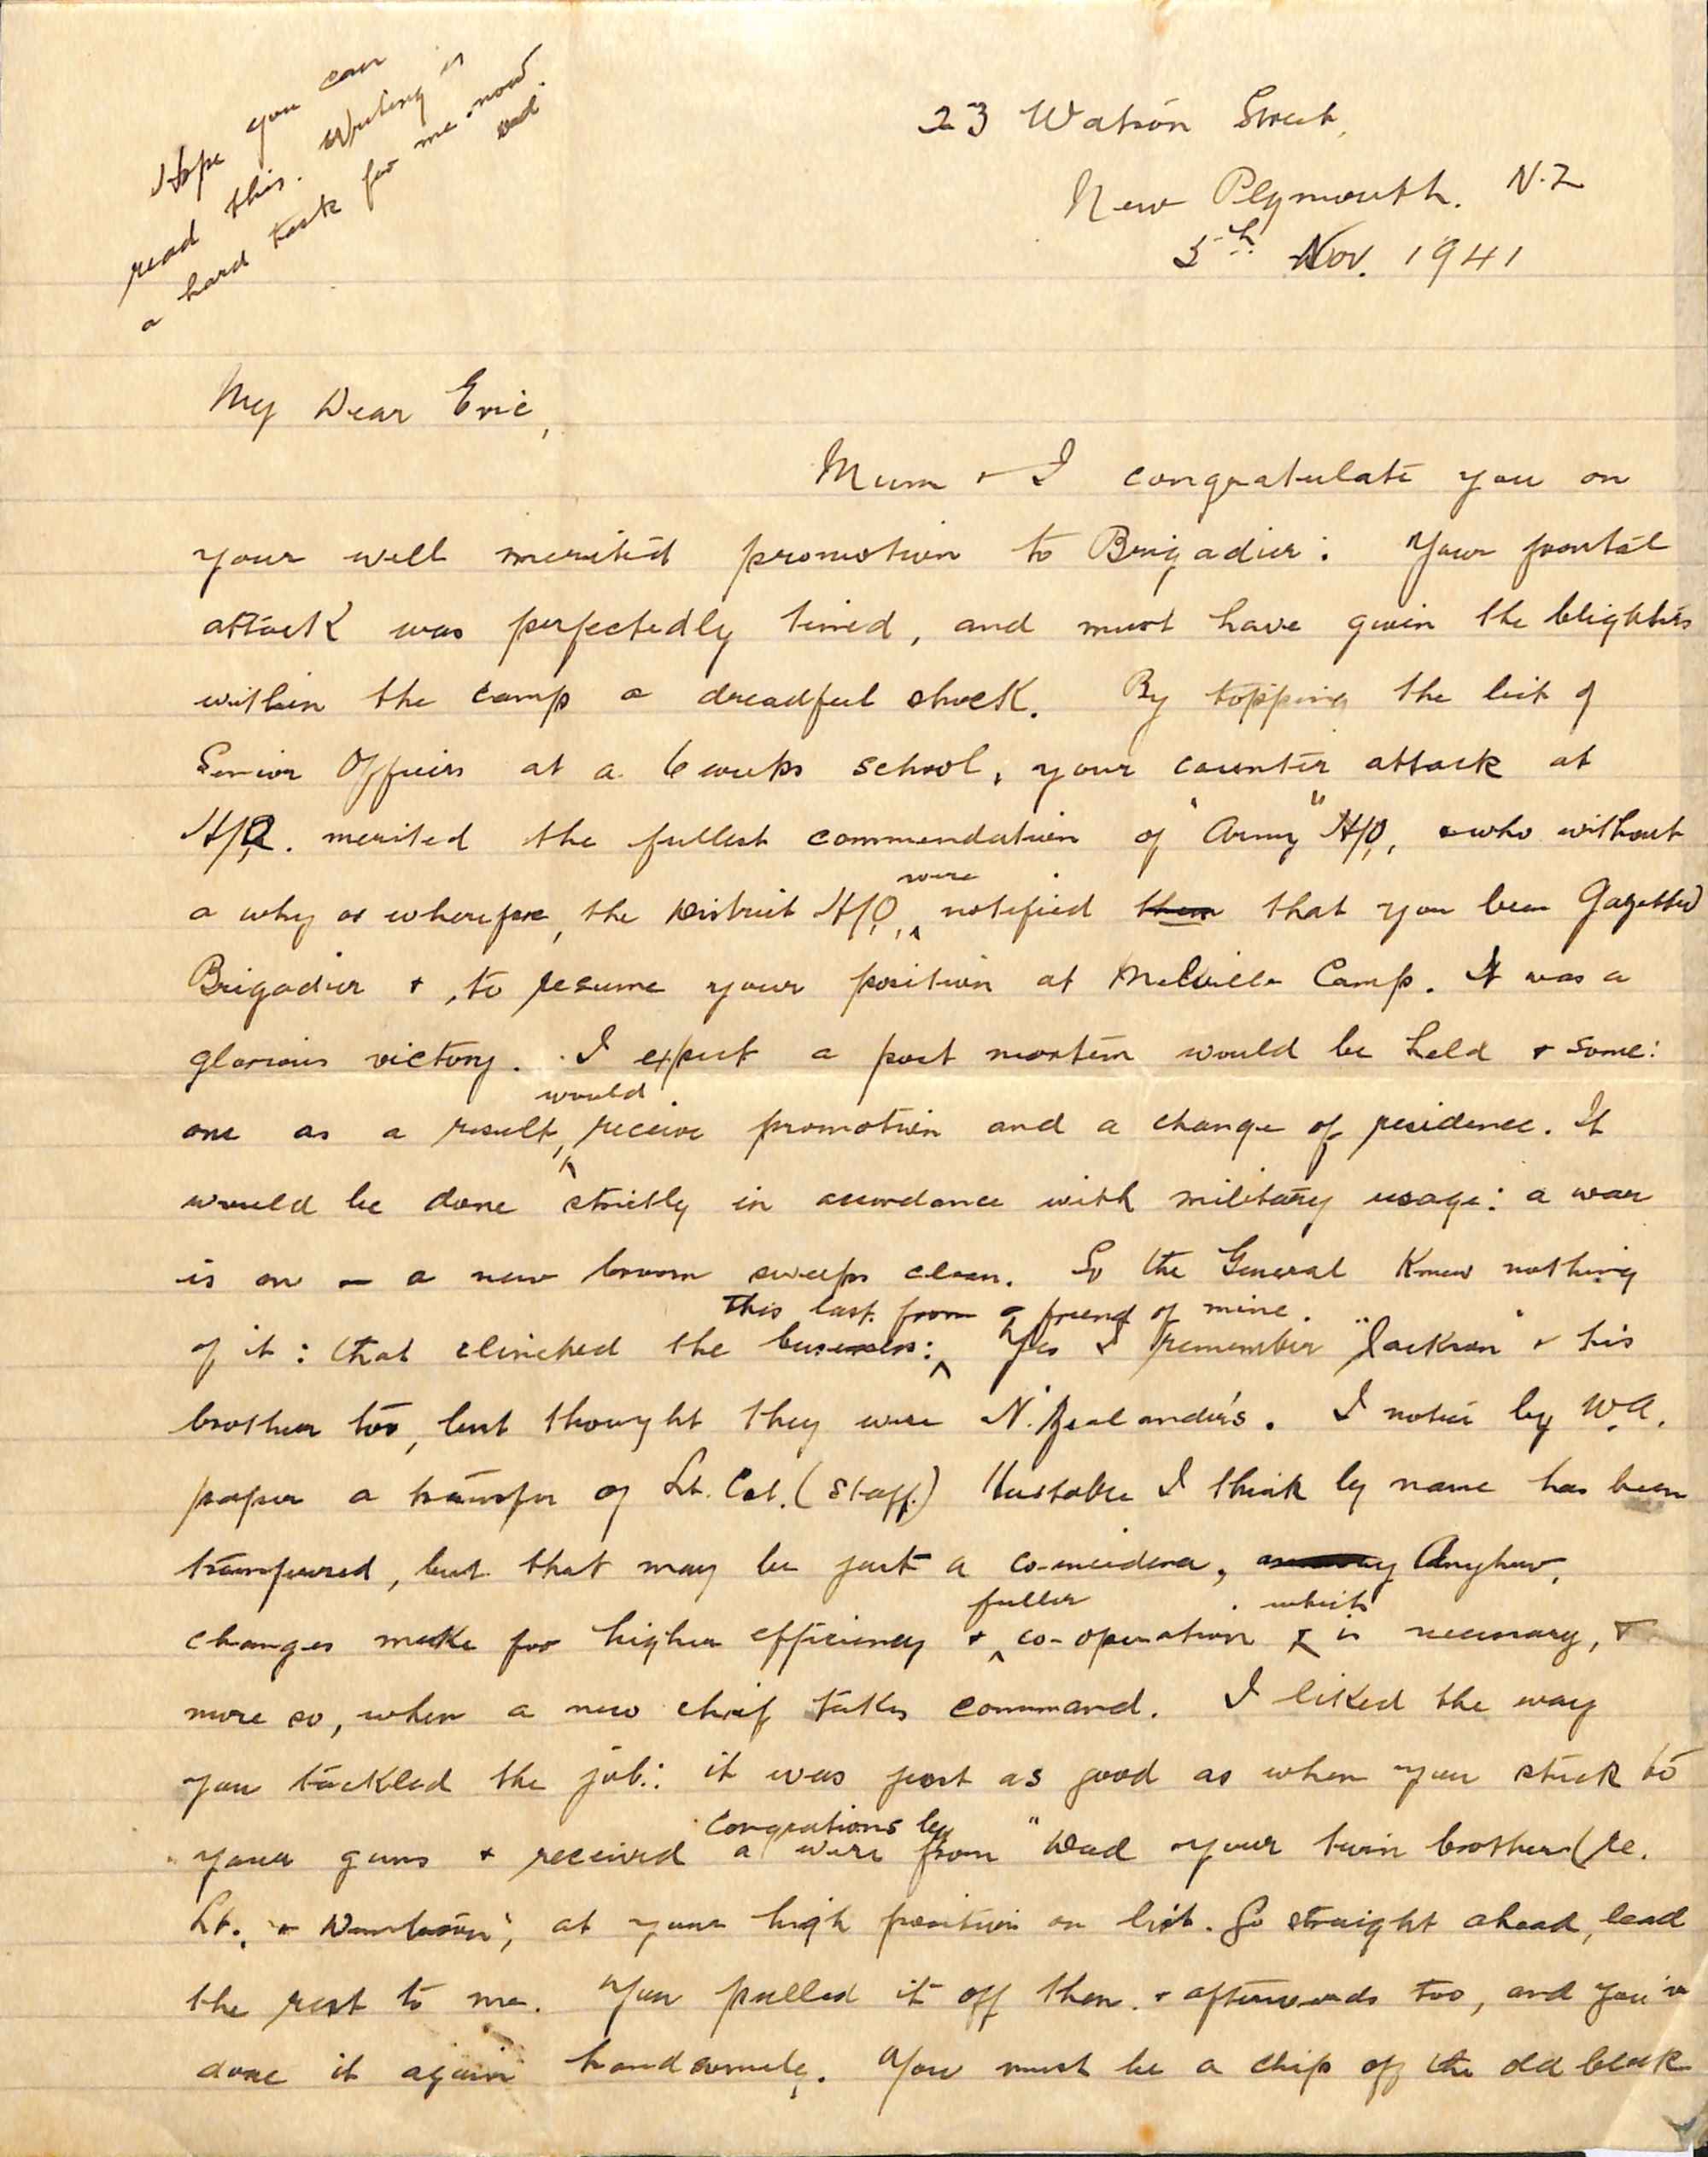 Hope you can
read this. Writing is
a hard task for me now.
Dad
23 Watson Street,
New Plymouth. N.Z
5th Nov. 1941
My Dear Eric,
Mum & I congratulate you on
your well merited promotion to Brigadier: Your frontal
attack was perfectedly timed, and must have given the blighters
within the camp a dreadful shock. By topping the list of
Senior Officers at a 6 weeks school, your counter attack at
H/Q. merited the fullest commendation of "Army" H/Q, who without
a why or wherefore, the District H/Q, were notified them that you been Gazetted
Brigadier & to resume your position at Melville Camp. It was a
glorious victory. I expect a post mortem would be held & some:
one as a result, would receive promotion and a change of residence. It
would be done strictly in accordance with military usage: a war
is on – a new broom sweeps clean. So the General Knew nothing
of it: that clinched the business: This last from a friend of mine. Yes I remember "Jackson" & his
brother too, but thought they were N. Zealander's. I notice by W.A.
paper a transfer of Lt. Col. (Staff.) I think by name has been
transferred, but that may be just a co-incidence, Anyhow,
changes make for higher efficiency & fuller co-operation which is necessary, &
more so, when a new chief takes command. I liked the way
you tackled the job: it was just as good as when you stuck to
your guns & received congrations by a wire from "Dad your twin brother (re.
Lt. at your high position on list. Go straight ahead, lead
the rest to me. You pulled it off then & afterwards too, and you've
done it again handsomely. You must be a chip off the old block